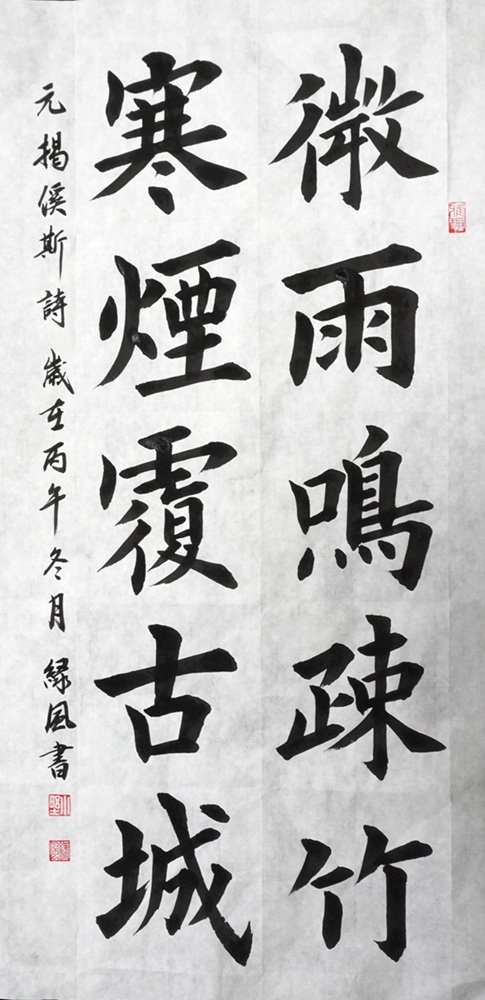 微雨鳴疎竹
寒煙覆古城
元揭傒斯詩 歲在丙午冬月 緑風書